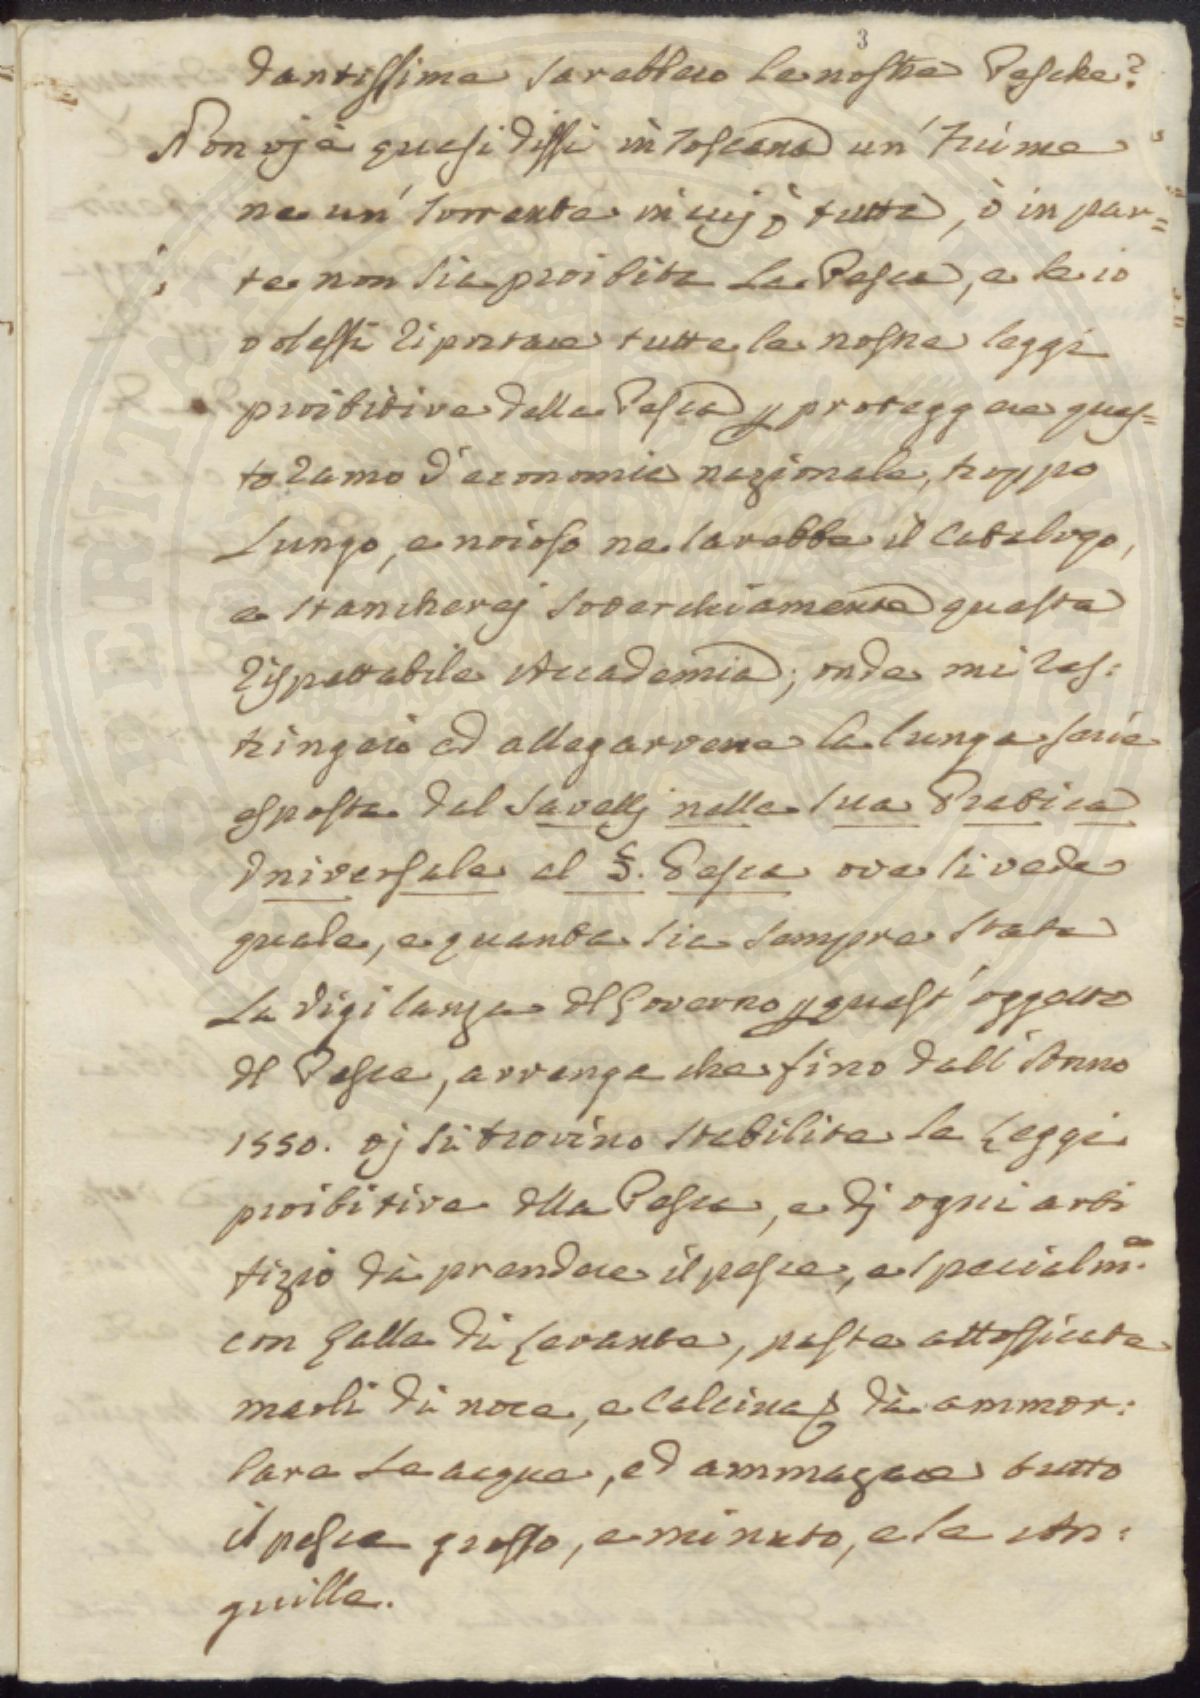 3
dantissime sarebbero le nostre Pesche?
Non vj è quasi dissi in Toscana un' Fiume
ne un' Torrente in cuj ò tutta, ò in par=
te non sia proibita la Pesca, e se io
volessi riportare tutte le nostre leggi
proibitive della Pesca p proteggere ques=
to ramo d'economia nazionale, troppo
lungo, e noioso ne sarebbe il Catalogo,
e stancherej soverchiamente questa
rispettabile Accademia; onde mi res:
tringerò ad allegarvene la lunga serie
esposta dal Savellj nella sua Pratica
Universale al §. Pesca ove si vede
quale, e quanta sia sempre stata
la vigilanza dl Governo p quest' oggetto
dl Pesca, avvenga che fino dall' Anno
1550. vj si trovino stabilite le Leggi
proibitive dlla Pesca, e dj ogni arti
fizio di prendere il pesce, e specialm.e
con Galla di Levante, paste attossicate
malli di noce, e Calcina p di ammor:
bare le acque, ed ammazzare tutto
il pesce grosso, e minuto, e le An:
guille.